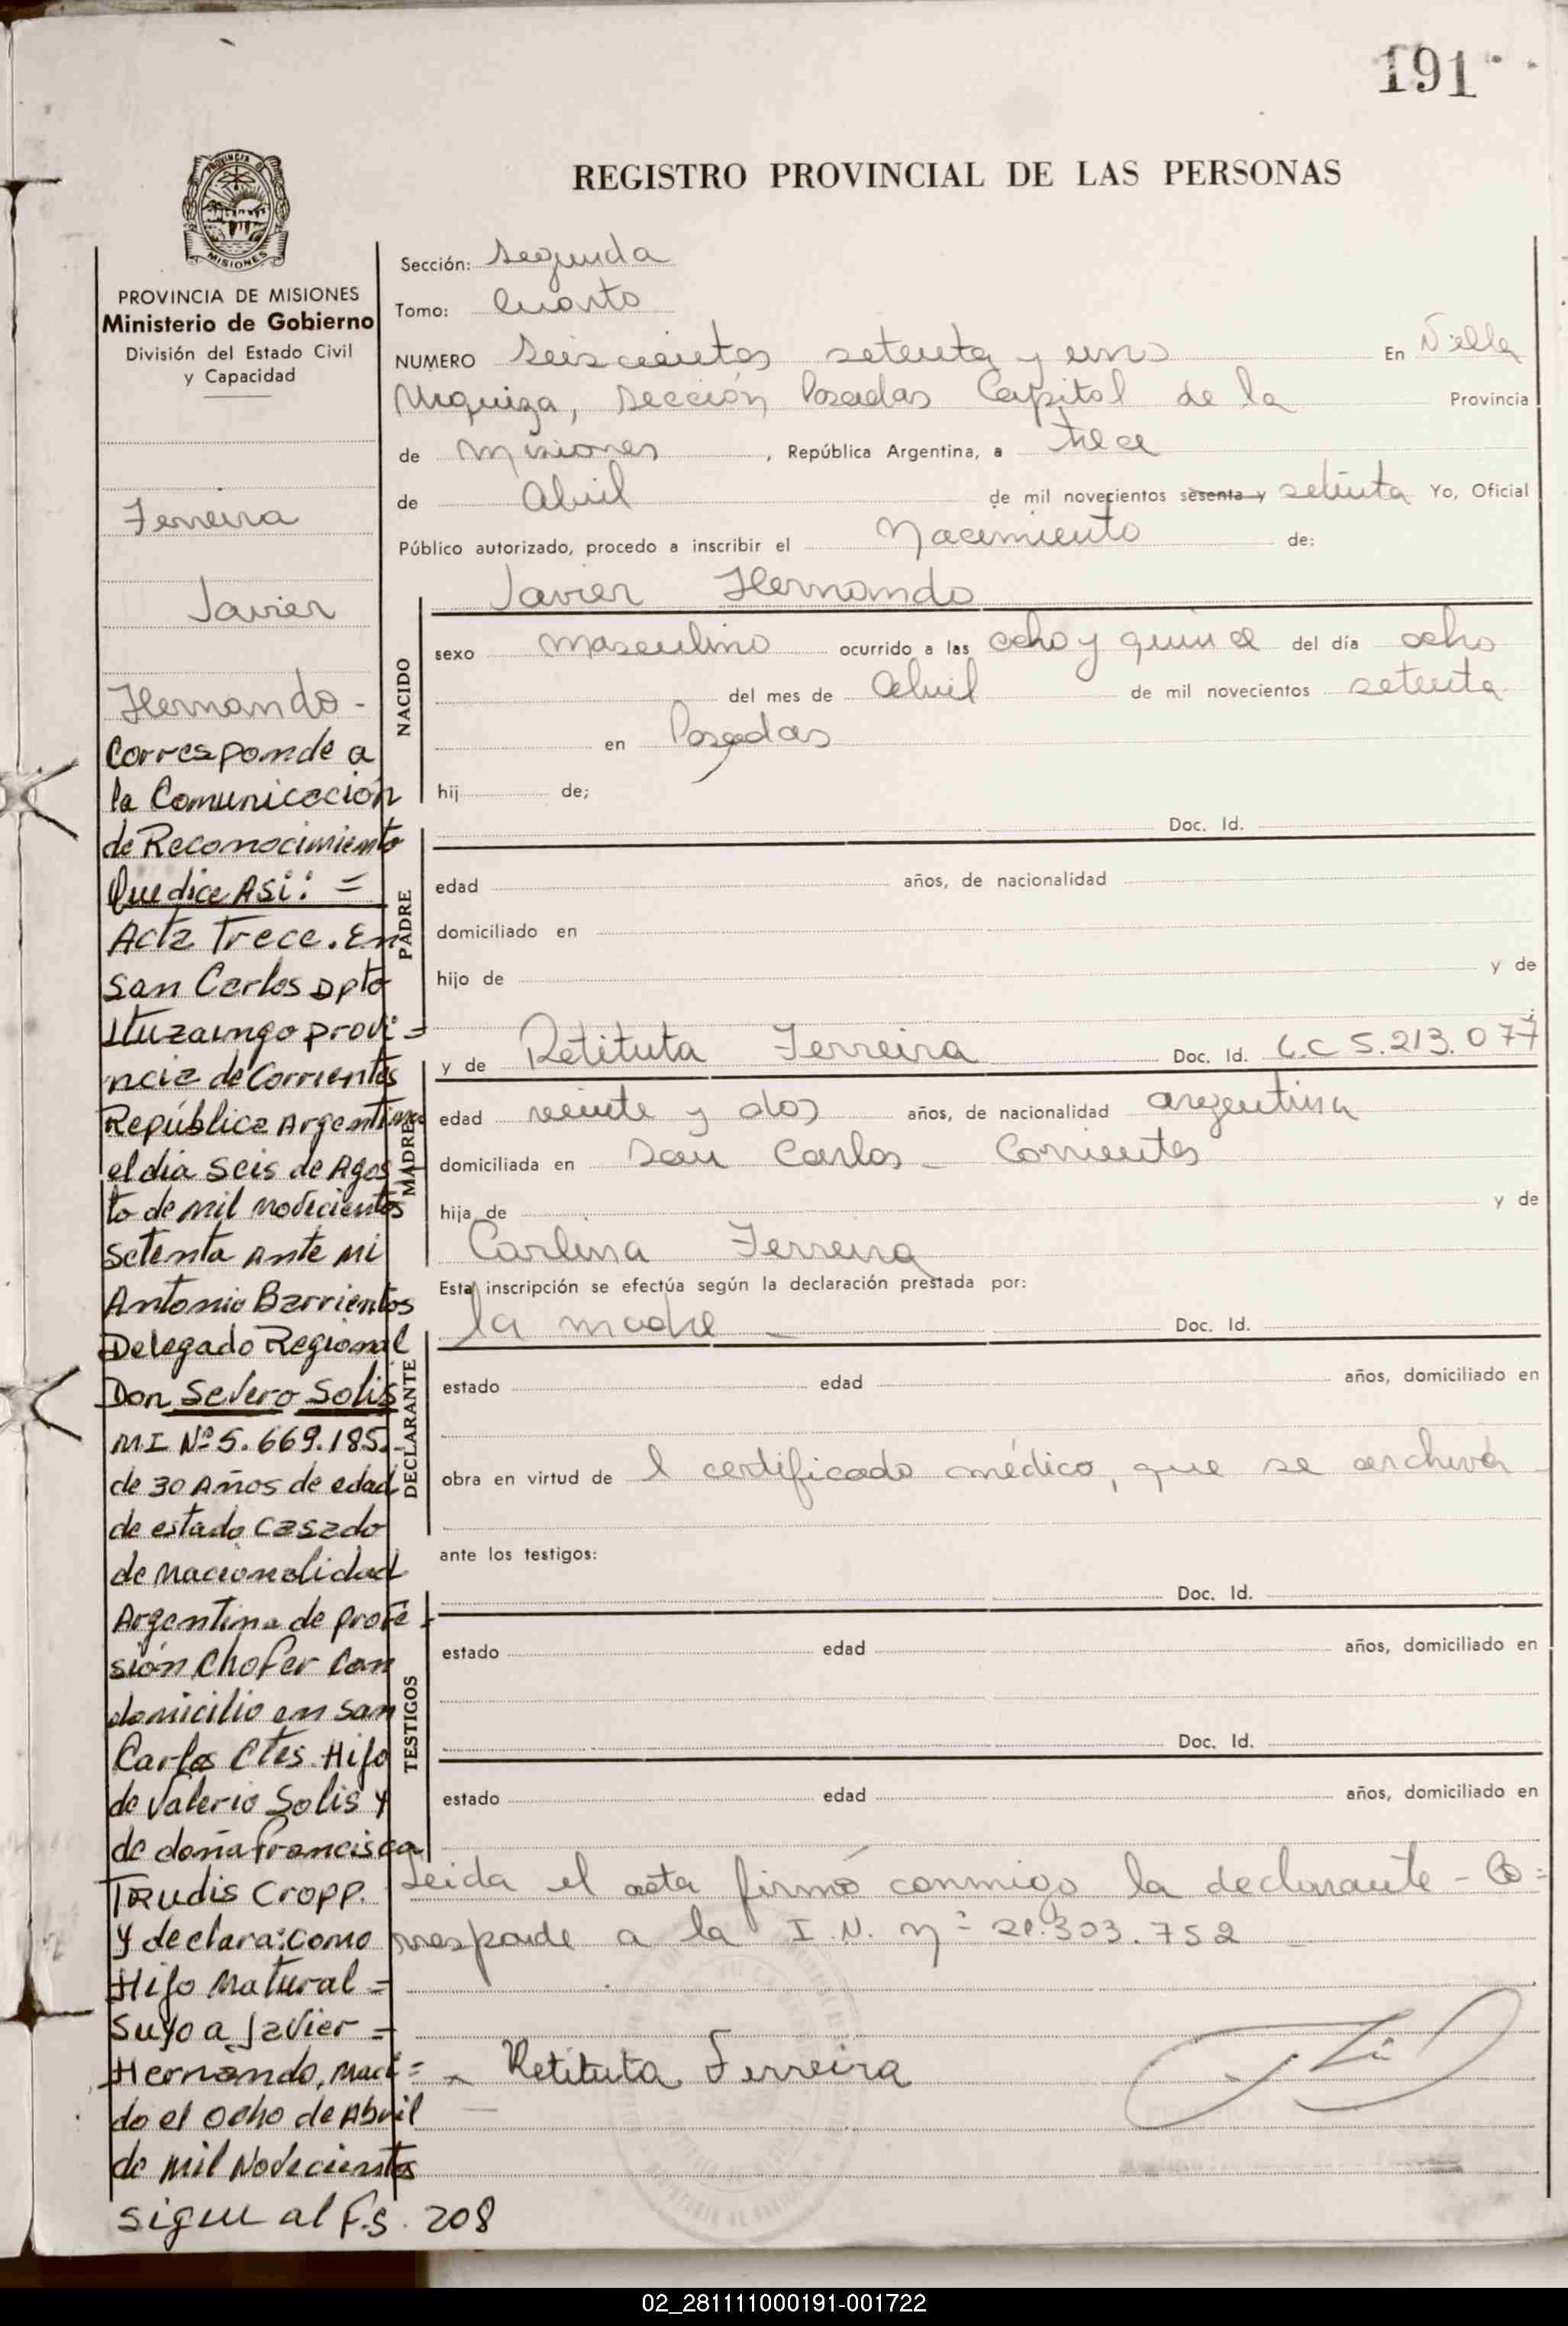 191
REGISTRO PROVINCIAL DE LAS PERSONAS
PROVINCIA DE MISIONES
Ministerio de Gobierno
División del Estado Civil
y Capacidad
Ferreira
Javier
Hernando -
Corresponde a
la Comunicación
de Reconocimiento
Que dice Asi: =
Acta Trece. En
San Carlos Dpto
Ituzaingo provi=
ncia de Corrientes
República Argentina
el dia Seis de Agos
to de mil novecientos
Setenta Ante Mi
Antonio Barrientos
Delegado Regional
Don Severo Solis
M.I Nº 5.669.185.-
de 30 Años de edad
de estado Casado
de Nacionalidad
Argentina de profe=
sión Chofer Con
domicilio en San
Carlos Ctes. Hijo
de Valerio Solis y
de doña Francisca
Cropp.
y declara: como
Hijo Natural =
Suyo a Javier =
Hernando, naci=
do el ocho de Abril
de Mil Novecientos
sigue al Fs. 208
Sección: Segunda
Tomo: Cuarto
NUMERO Seiscientos setenta y uno En Villa
Urquiza, Sección Posadas Capital de la Provincia
de Misiones, República Argentina, a trece
de Abril de mil novecientos sesenta y setenta Yo, Oficial
Público autorizado, procedo a inscribir el Nacimiento de:
Javier Hernando
NACIDO
sexo masculino ocurrido a las ocho y quince del día ocho
del mes de Abril de mil novecientos setenta
en Posadas
hij de;
Doc. Id.
PADRE
edad años, de nacionalidad
domiciliado en
hijo de y de
y de Retituta Ferreira Doc. Id. L.C 5.213.077
MADRE
edad veinte y dos años, de nacionalidad argentina
domiciliada en San Carlos - Corrientes
hija de y de
Carlina Ferreira
Esta inscripción se efectúa según la declaración prestada por:
la madre - Doc. Id.
DECLARANTE
estado edad años, domiciliado en
obra en virtud de l certificado médico, que se archiva
ante los testigos:
Doc. Id.
TESTIGOS
estado edad años, domiciliado en
Doc. Id.
estado edad años, domiciliado en
Leida el acta firmó conmigo la declarante - Co=
rresponde a la I. N. nº 21.303.752 -
Retituta Ferreira
02_281111000191-001722